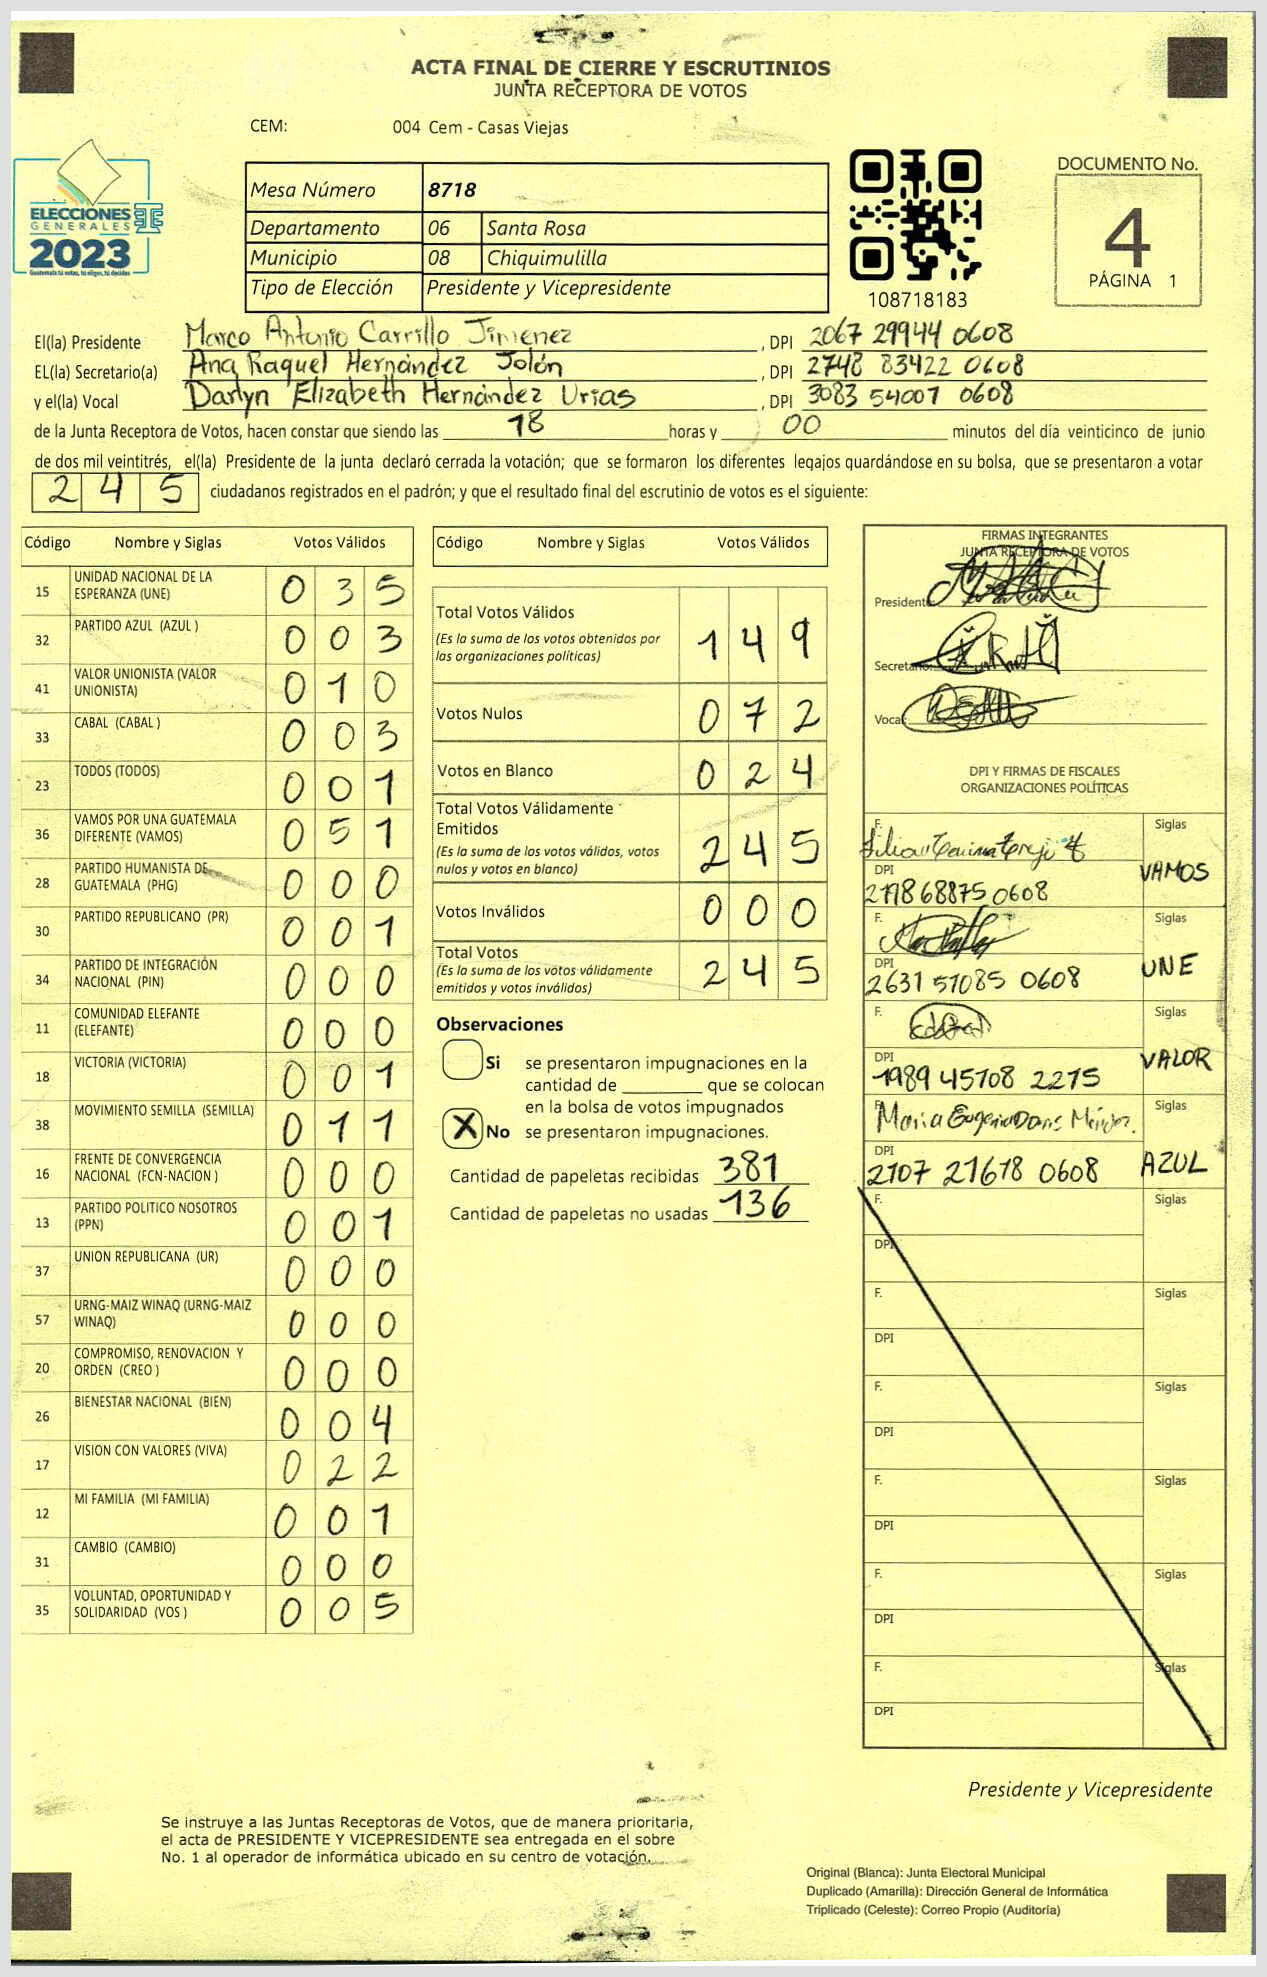 ACTA FINAL DE CIERRE Y ESCRUTINIOS
JUNTA RECEPTORA DE VOTOS
CEM: 004 Cem - Casas Viejas
ELECCIONES
GENERALES
2023
Guatemala tú votas, tú eliges, tú decides
Mesa Número 8718
Departamento 06 Santa Rosa
Municipio 08 Chiquimulilla
Tipo de Elección Presidente y Vicepresidente
108718183
DOCUMENTO No.
4
PÁGINA 1
El(la) Presidente Marco Antonio Carrillo Jimenez , DPI 2067 29944 0608
EL(la) Secretario(a) Ana Raquel Hernández Jolón , DPI 2748 83422 0608
y el(la) Vocal Darlyn Elizabeth Hernández Urias , DPI 3083 54007 0608
de la Junta Receptora de Votos, hacen constar que siendo las 18 horas y 00 minutos del día veinticinco de junio
de dos mil veintitrés, el(la) Presidente de la junta declaró cerrada la votación; que se formaron los diferentes legajos guardándose en su bolsa, que se presentaron a votar
245 ciudadanos registrados en el padrón; y que el resultado final del escrutinio de votos es el siguiente:
Código Nombre y Siglas Votos Válidos
15 UNIDAD NACIONAL DE LA ESPERANZA (UNE) 0 3 5
32 PARTIDO AZUL (AZUL ) 0 0 3
41 VALOR UNIONISTA (VALOR UNIONISTA) 0 1 0
33 CABAL (CABAL ) 0 0 3
23 TODOS (TODOS) 0 0 1
36 VAMOS POR UNA GUATEMALA DIFERENTE (VAMOS) 0 5 1
28 PARTIDO HUMANISTA DE GUATEMALA (PHG) 0 0 0
30 PARTIDO REPUBLICANO (PR) 0 0 1
34 PARTIDO DE INTEGRACIÓN NACIONAL (PIN) 0 0 0
11 COMUNIDAD ELEFANTE (ELEFANTE) 0 0 0
18 VICTORIA (VICTORIA) 0 0 1
38 MOVIMIENTO SEMILLA (SEMILLA) 0 1 1
16 FRENTE DE CONVERGENCIA NACIONAL (FCN-NACION ) 0 0 0
13 PARTIDO POLITICO NOSOTROS (PPN) 0 0 1
37 UNION REPUBLICANA (UR) 0 0 0
57 URNG-MAIZ WINAQ (URNG-MAIZ WINAQ) 0 0 0
20 COMPROMISO, RENOVACION Y ORDEN (CREO ) 0 0 0
26 BIENESTAR NACIONAL (BIEN) 0 0 4
17 VISION CON VALORES (VIVA) 0 2 2
12 MI FAMILIA (MI FAMILIA) 0 0 1
31 CAMBIO (CAMBIO) 0 0 0
35 VOLUNTAD, OPORTUNIDAD Y SOLIDARIDAD (VOS ) 0 0 5
Código Nombre y Siglas Votos Válidos
Total Votos Válidos 1 4 9
(Es la suma de los votos obtenidos por
las organizaciones políticas)
Votos Nulos 0 7 2
Votos en Blanco 0 2 4
Total Votos Válidamente
Emitidos 2 4 5
(Es la suma de los votos válidos, votos
nulos y votos en blanco)
Votos Inválidos 0 0 0
Total Votos 2 4 5
(Es la suma de los votos válidamente
emitidos y votos inválidos)
Observaciones
Si se presentaron impugnaciones en la
cantidad de ________ que se colocan
en la bolsa de votos impugnados
X No se presentaron impugnaciones.
Cantidad de papeletas recibidas 381
Cantidad de papeletas no usadas 136
FIRMAS INTEGRANTES
JUNTA RECEPTORA DE VOTOS
Presidente:
Secretario:
Vocal:
DPI Y FIRMAS DE FISCALES
ORGANIZACIONES POLÍTICAS
F. Siglas
DPI VAMOS
2198 68875 0608
F. Siglas
DPI UNE
2631 57085 0608
F. Siglas
DPI VALOR
1989 45708 2215
F. Maria Eugenia Siglas
DPI AZUL
2107 21678 0608
F. Siglas
DPI
F. Siglas
DPI
F. Siglas
DPI
F. Siglas
DPI
F. Siglas
DPI
F. Siglas
DPI
Presidente y Vicepresidente
Se instruye a las Juntas Receptoras de Votos, que de manera prioritaria,
el acta de PRESIDENTE Y VICEPRESIDENTE sea entregada en el sobre
No. 1 al operador de informática ubicado en su centro de votación.
Original (Blanca): Junta Electoral Municipal
Duplicado (Amarilla): Dirección General de Informática
Triplicado (Celeste): Correo Propio (Auditoría)